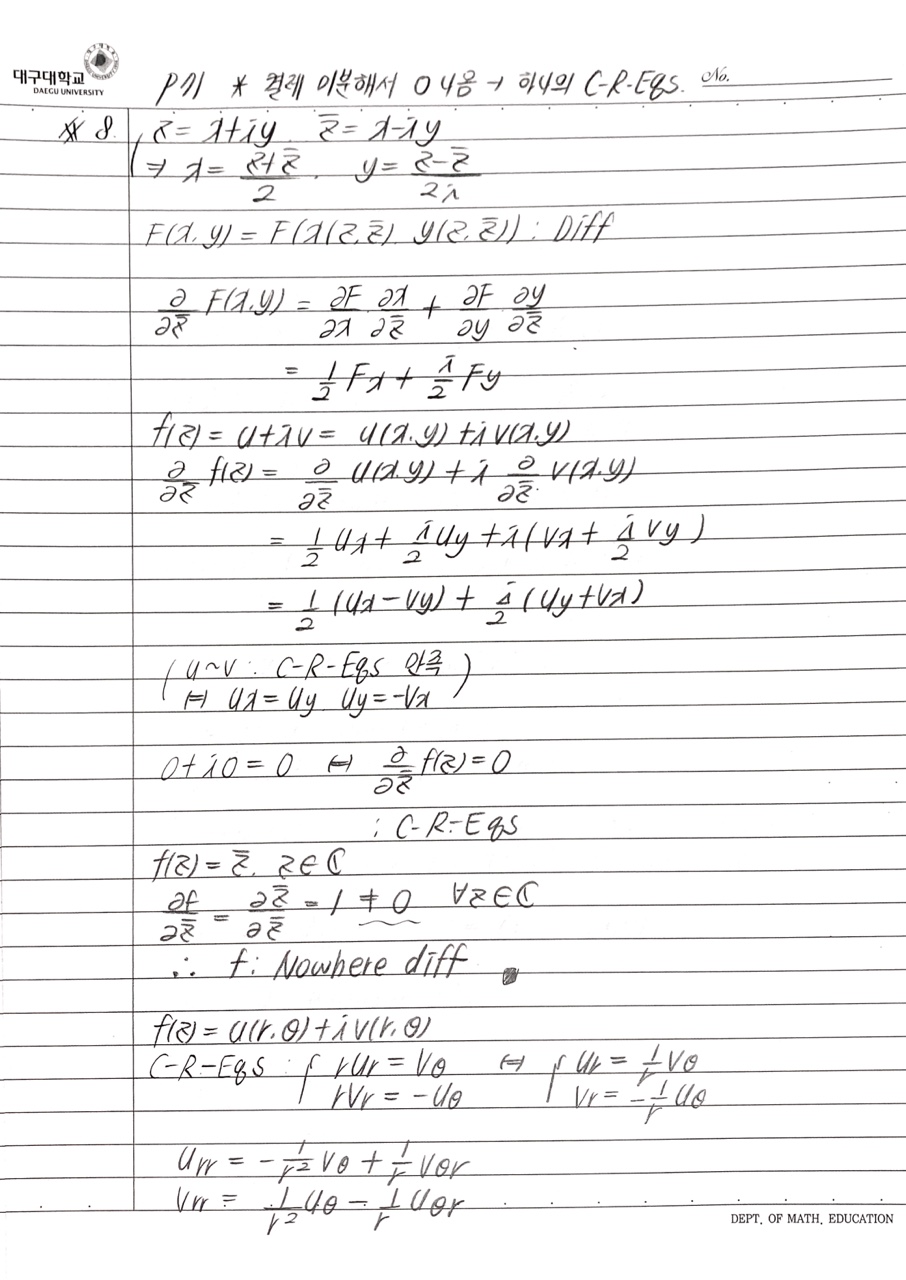 대구대학교
DAEGU UNIVERSITY
P71 * 켤레 미분해서 0 나옴 → 하나의 C-R-Eqs. No.
※ 8. z = x+iy. z̅ = x-iy
⇒ x = (z+z̅)/2 . y = (z-z̅)/2i
F(x,y) = F(x(z,z̅). y(z,z̅)) : Diff
∂/∂z̅ F(x,y) = ∂F/∂x ∂x/∂z̅ + ∂F/∂y ∂y/∂z̅
= 1/2 Fx + i/2 Fy
f(z) = u+iv = u(x.y) + iv(x.y)
∂/∂z̅ f(z) = ∂/∂z̅ u(x.y) + i ∂/∂z̅ v(x.y)
= 1/2 ux + i/2 uy + i(vx + i/2 vy)
= 1/2 (ux-vy) + i/2 (uy+vx)
(u~v : C-R-Eqs 만족
⇔ ux = uy. uy = -vx)
0+i0 = 0 ⇔ ∂/∂z̅ f(z) = 0
: C-R-Eqs
f(z) = z̅. z∈ℂ
∂f/∂z̅ = ∂z̅/∂z̅ = 1 ≠ 0 ∀z∈ℂ
∴ f: Nowhere diff
f(z) = u(r.θ) + iv(r.θ)
C-R-Eqs : { rur = vθ ⇔ { ur = 1/r vθ
rvr = -uθ vr = -1/r uθ
urr = -1/r² vθ + 1/r vθr
vrr = 1/r² uθ - 1/r uθr
DEPT. OF MATH. EDUCATION